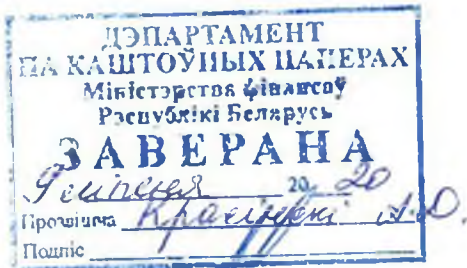 ДЭПАРТАМЕНТ
ПА КАШТОЎНЫХ ПАПЕРАХ
Міністэрства фінансаў
Рэспублікі Беларусь
ЗАВЕРАНА
9 ліпеня 2020
Прозвішча Красінскі А.О.
Подпіс